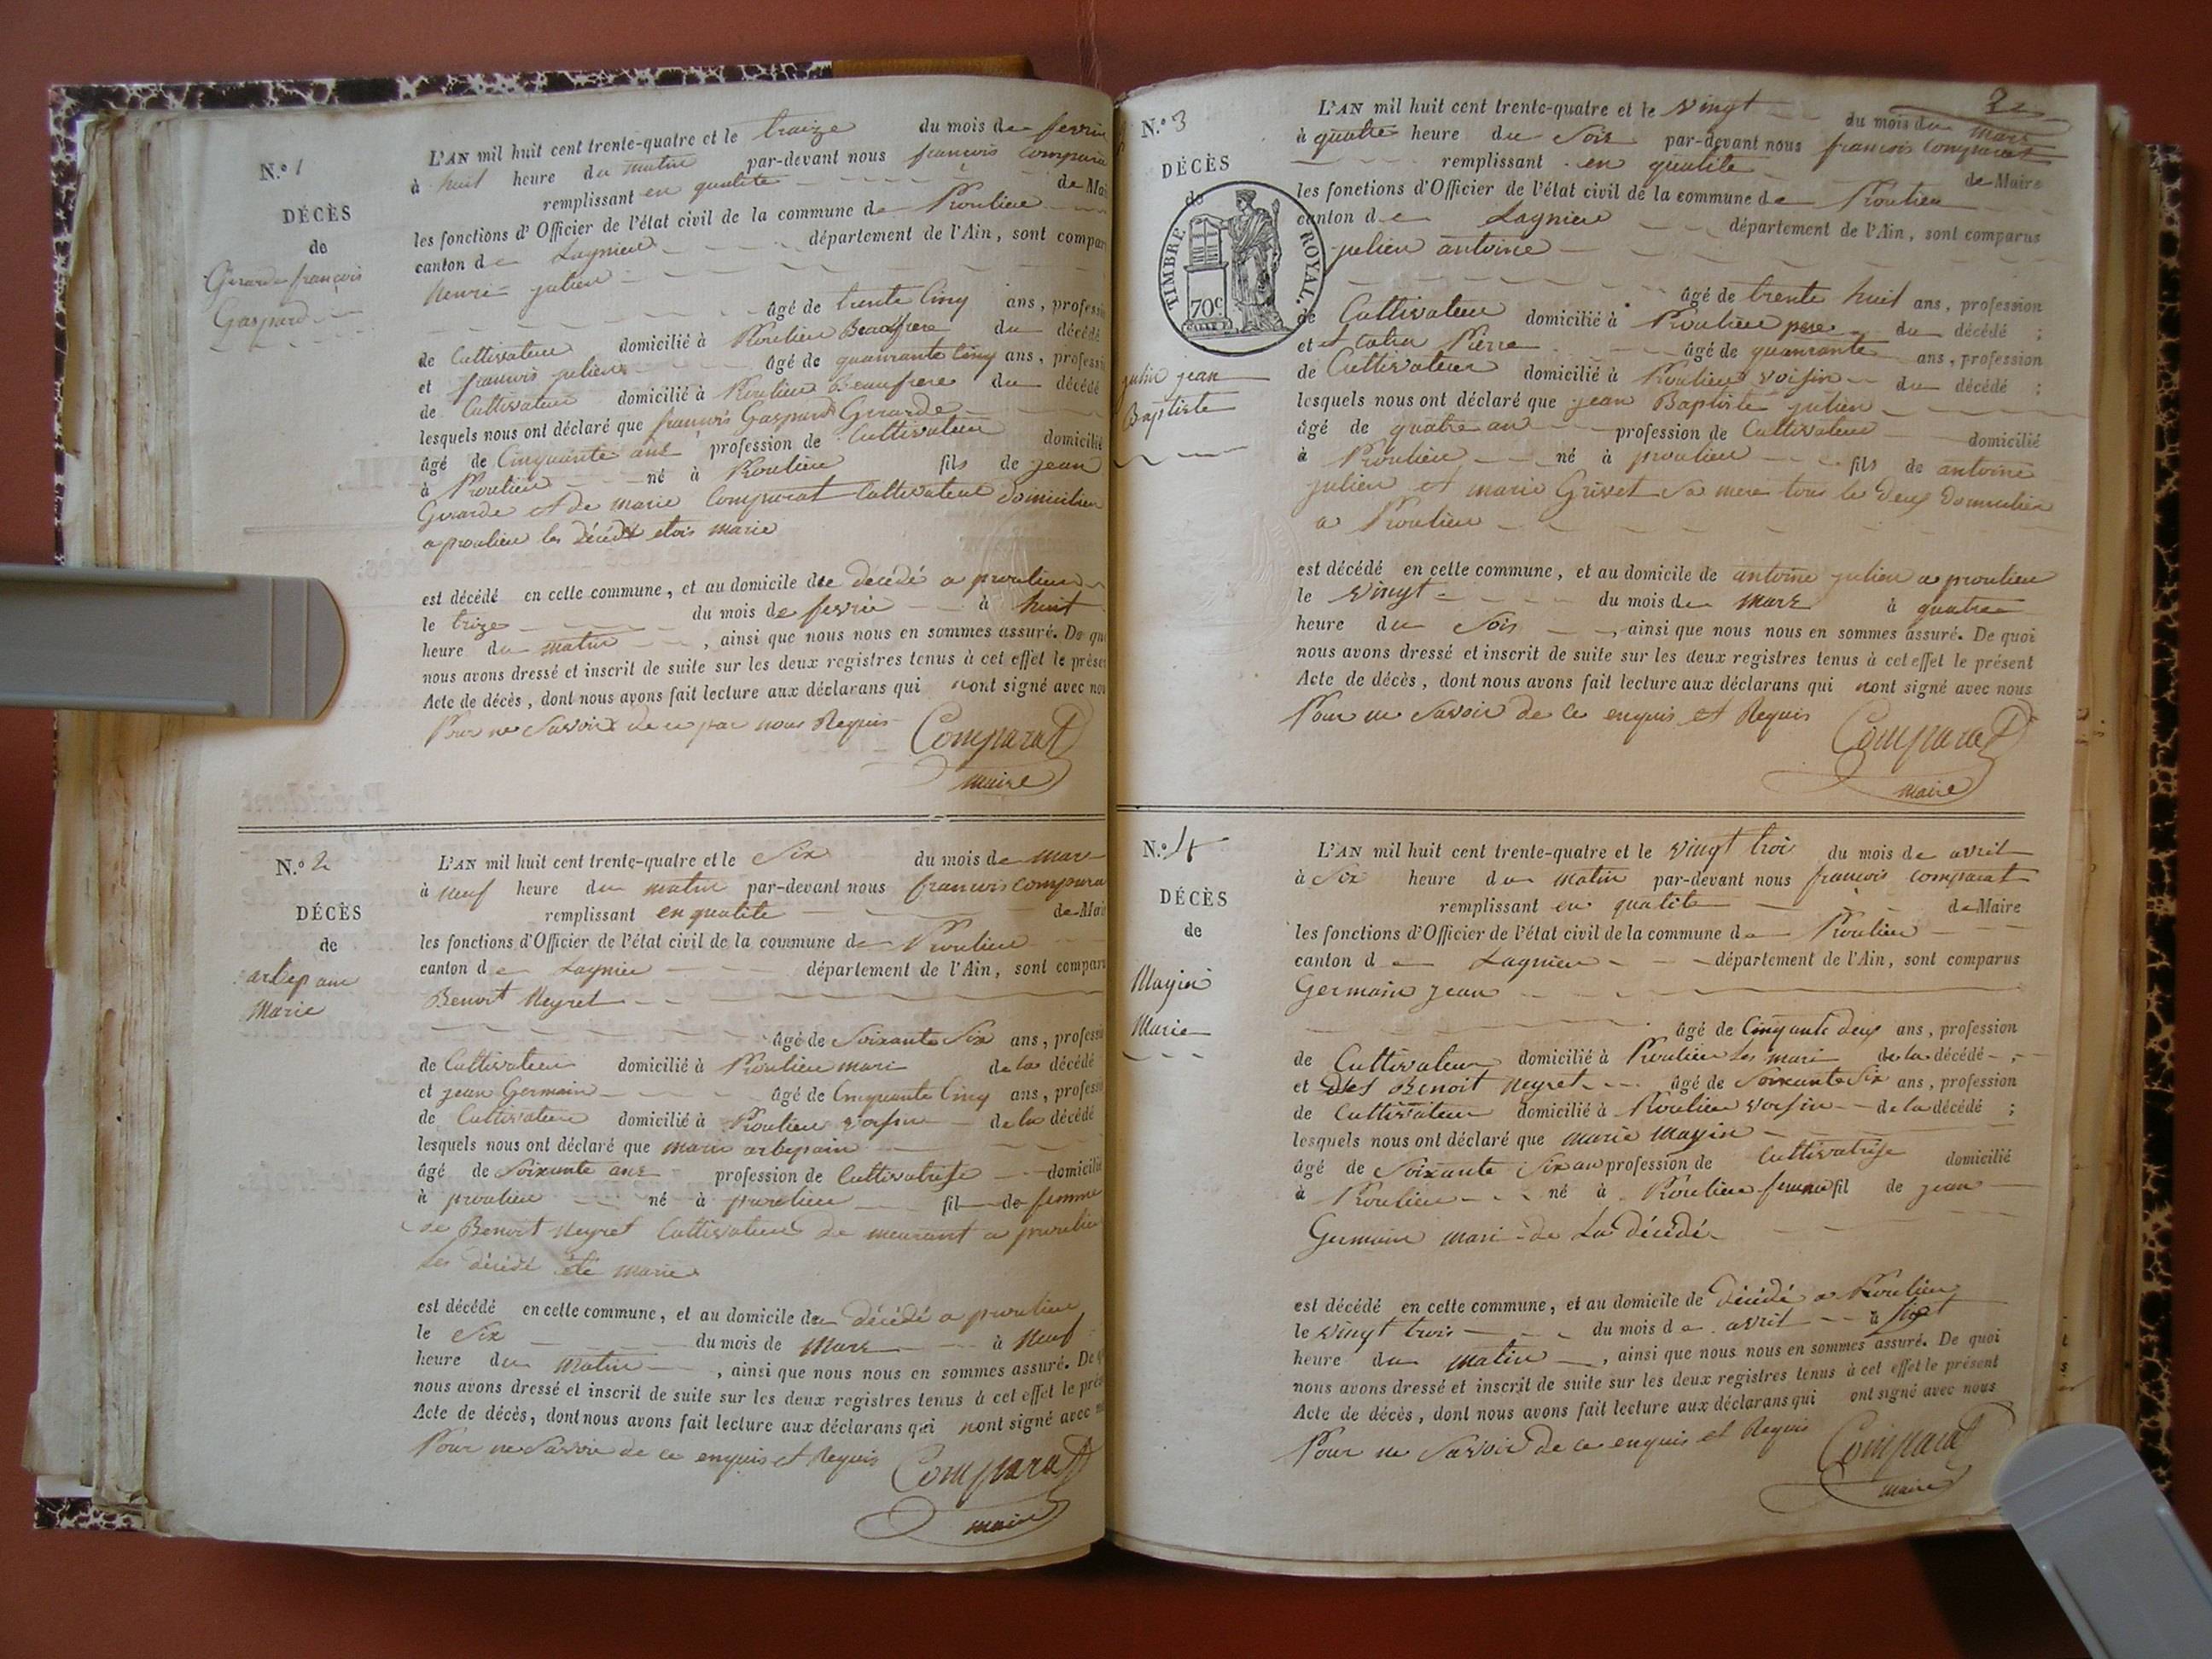 N.º 1
DÉCÈS
de
Girarde françois
Gaspard
L'AN mil huit cent trente-quatre et le traize du mois de fevrie
à huit heure du matin par-devant nous francois compara
remplissant en qualite de Mai
les fonctions d'Officier de l'état civil de la commune de Proulieu
canton de Lagnieu département de l'Ain, sont compar
henri julien
âgé de trente Cinq ans, professi
de Cultivateur domicilié à Proulieu Beaufrere du décédé
et francois julien âgé de quanrante Cinq ans, professi
de Cultivateur domicilié à Proulieu Beaufrere du décédé
lesquels nous ont déclaré que francois Gaspard Girarde
âgé de Cinquante ans profession de Cultivateur domicilié
à Proulieu né à Proulieu fils de jean
Girarde et de marie Comparat Cultivateur domicilier
a proulieu les décédé etois marie
est décédé en cette commune, et au domicile de decédé a proulieu
le trize du mois de fevrie à huit
heure du matin, ainsi que nous nous en sommes assuré. De quo
nous avons dressé et inscrit de suite sur les deux registres tenus à cet effet le présen
Acte de décès, dont nous avons fait lecture aux déclarans qui nont signé avec nou
Pour ne Savoir de ce par nous Requis Comparat
maire
N.º 2
DÉCÈS
de
arbepain
Marie
L'AN mil huit cent trente-quatre et le Six du mois de mars
à neuf heure du matin par-devant nous francois compara
remplissant en qualite de Mai
les fonctions d'Officier de l'état civil de la commune de Proulieu
canton de Lagnieu département de l'Ain, sont compar
Benoit Neyret
âgé de Soixante Six ans, professi
de Cultivateur domicilié à Proulieu mari de la décédé
et jean Germain âgé de Cinquante Cinq ans, professi
de Cultivateur domicilié à Proulieu voisin de la décédé
lesquels nous ont déclaré que marie arbepain
âgé de Soixante ans profession de Cultivatrise domicilié
à proulieu né à proulieu fil de femme
de Benoit Neyret Cultivateur de meurant a proulieu
les décédé été marie
est décédé en cette commune, et au domicile de décédé a proulieu
le Six du mois de Mars à Neuf
heure du Matin, ainsi que nous nous en sommes assuré. De q
nous avons dressé et inscrit de suite sur les deux registres tenus à cet effet le prés
Acte de décès, dont nous avons fait lecture aux déclarans qui nont signé avec n
Pour ne Savoir de ce enquis et Requis Comparat
maire
2
N.º 3
DÉCÈS
de
TIMBRE ROYAL.
70c
julien jean
Baptiste
L'AN mil huit cent trente-quatre et le vingt du mois du mars
à quatre heure du Soir par-devant nous francois Comparat
remplissant en qualite de Maire
les fonctions d'Officier de l'état civil de la commune de Proulieu
canton de Lagnieu département de l'Ain, sont comparus
julien antoine
âgé de trente huit ans, profession
de Cultivateur domicilié à Proulieu pere du décédé ;
et Pierre âgé de quanrante ans, profession
de Cultivateur domicilié à Proulieu voisin du décédé ;
lesquels nous ont déclaré que jean Baptiste julien
âgé de quatre an profession de Cultivateur domicilié
à Proulieu né à proulieu fils de antoine
julien et marie Grivet Sa mere tous le deux domicilier
a Proulieu
est décédé en cette commune, et au domicile de antoine julien a proulieu
le vingt du mois de mars à quatre
heure du Soir, ainsi que nous nous en sommes assuré. De quoi
nous avons dressé et inscrit de suite sur les deux registres tenus à cet effet le présent
Acte de décès, dont nous avons fait lecture aux déclarans qui nont signé avec nous
Pour ne Savoir de Ce enquis et Requis Comparat
maire
N.º 4
DÉCÈS
de
Mayin
Marie
L'AN mil huit cent trente-quatre et le vingt trois du mois de avril
à Six heure du matin par-devant nous françois comparat
remplissant en qualite de Maire
les fonctions d'Officier de l'état civil de la commune de Proulieu
canton de Lagnieu département de l'Ain, sont comparus
Germain jean
âgé de Cinquante deux ans, profession
de Cultivateur domicilié à Proulieu les mari de la décédé ;
et Benoit neyret âgé de Soixante Six ans, profession
de Cultivateur domicilié à Proulieu voisin de la décédé ;
lesquels nous ont déclaré que Marie Mayin
âgé de Soixante Six an profession de Cultivatrise domicilié
à Proulieu né à Proulieu femme fil de jean
Germain mari de La décédé
est décédé en cette commune, et au domicile de décédé a Proulieu
le vingt trois du mois de avril à
heure du matin, ainsi que nous nous en sommes assuré. De quoi
nous avons dressé et inscrit de suite sur les deux registres tenus à cet effet le présent
Acte de décès, dont nous avons fait lecture aux déclarans qui ont signé avec nous
Pour ne Savoir de ce enquis et Requis Comparat
maire